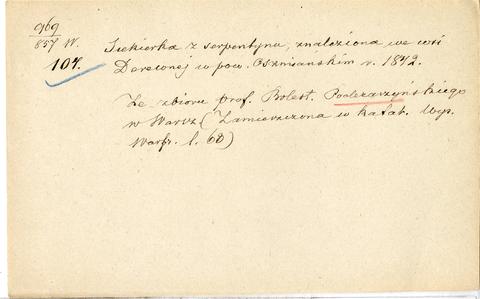 969
857 W.
104.
Siekierka z serpentynu, znaleziona we wsi
Derewnej w pow. Oszmiańskim r. 1842.
Ze zbioru prof. Bolest. Podczaszyńskiego
w Warsz. (Zamieszczona w Katal. Wys.
Warsz. l. 68)